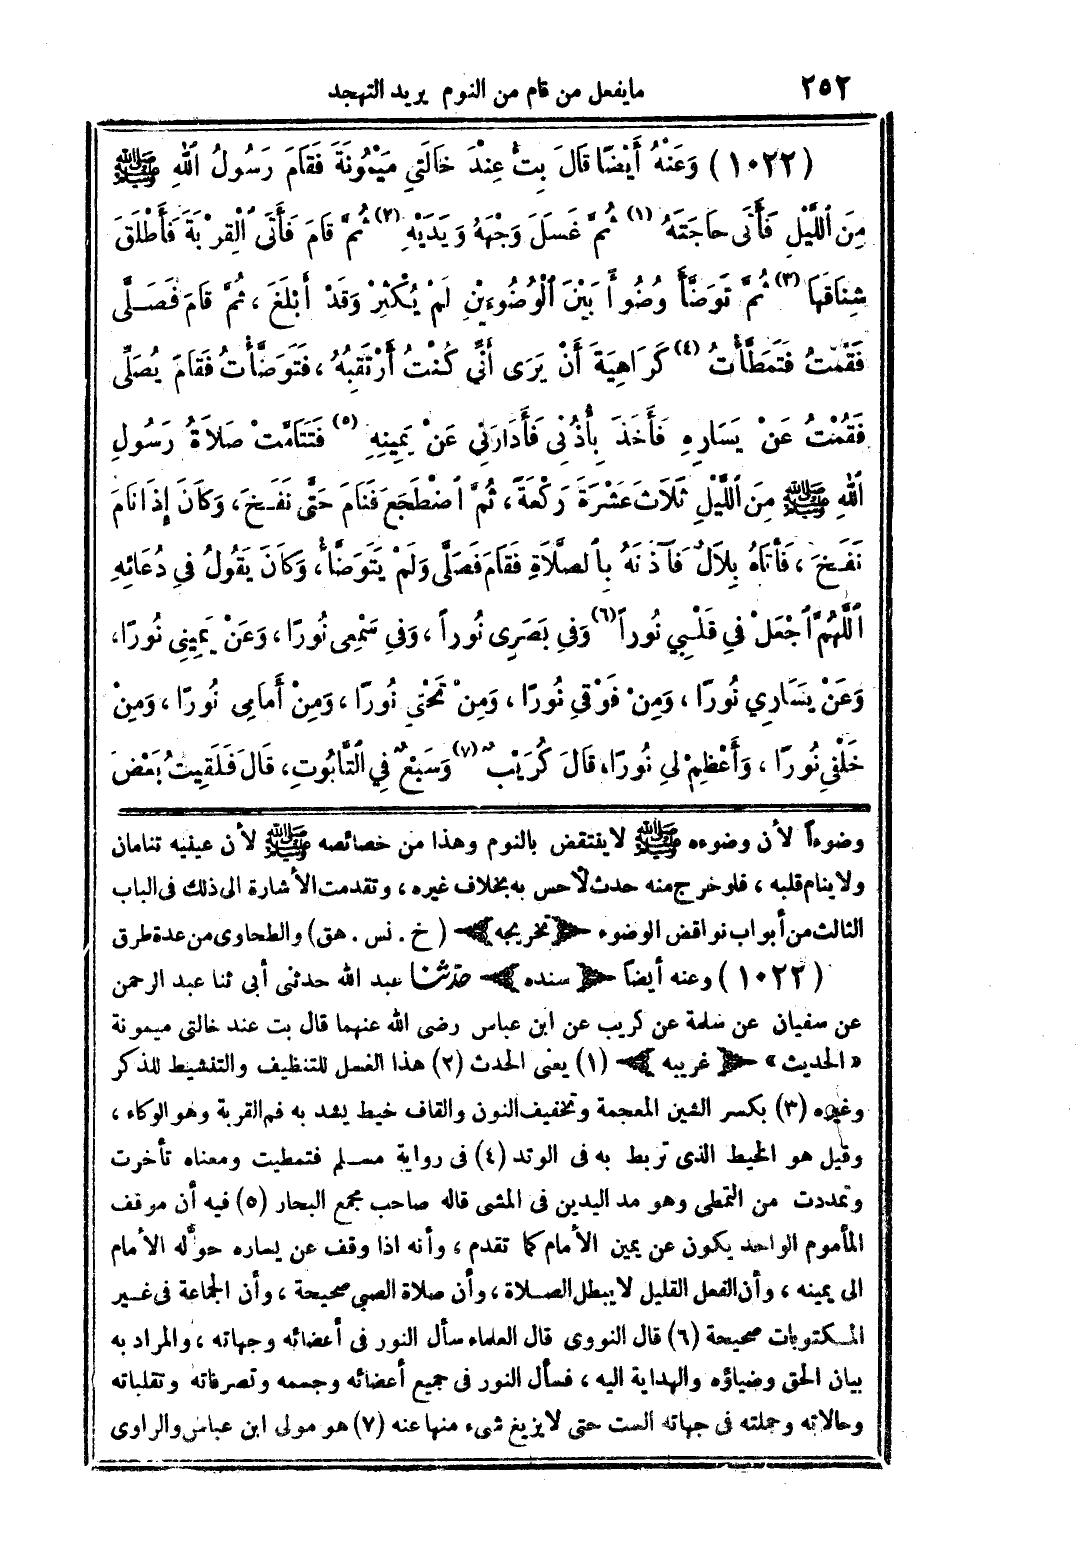 ٢٥٢ مايفعل من قام من النوم يريد التهجد
(١٠٢٢) وَعَنْهُ أَيْضًا قَالَ بِتُّ عِنْدَ خَالَتِي مَيْمُونَةَ فَقَامَ رَسُولُ ٱللهِ ﷺ
مِنَ ٱللَّيْلِ فَأَتَى حَاجَتَهُ (١) ثُمَّ غَسَلَ وَجْهَهُ وَيَدَيْهِ (٢) ثُمَّ قَامَ فَأَتَى ٱلْقِرْبَةَ فَأَطْلَقَ
شِنَاقَهَا (٣) ثُمَّ تَوَضَّأَ وُضُوءًا بَيْنَ ٱلْوُضُوءَيْنِ لَمْ يُكْثِرْ وَقَدْ أَبْلَغَ ، ثُمَّ قَامَ فَصَلَّى
فَقُمْتُ فَتَمَطَّأْتُ (٤) كَرَاهِيَةَ أَنْ يَرَى أَنِّي كُنْتُ أَرْتَقِبُهُ ، فَتَوَضَّأْتُ فَقَامَ يُصَلِّى
فَقُمْتُ عَنْ يَسَارِهِ فَأَخَذَ بِأُذُنِى فَأَدَارَنِى عَنْ يَمِينِهِ (٥) فَتَتَامَّتْ صَلَاةُ رَسُولِ
ٱللهِ ﷺ مِنَ ٱللَّيْلِ ثَلَاثَ عَشْرَةَ رَكْعَةً ، ثُمَّ ٱضْطَجَعَ فَنَامَ حَتَّى نَفَخَ ، وَكَانَ إِذَا نَامَ
نَفَخَ ، فَأَتَاهُ بِلَالٌ فَآذَنَهُ بِالصَّلَاةِ فَقَامَ فَصَلَّى وَلَمْ يَتَوَضَّأْ ، وَكَانَ يَقُولُ فِى دُعَائِهِ
ٱللَّهُمَّ ٱجْعَلْ فِي قَلْبِي نُوراً (٦) وَفِي بَصَرِى نُوراً ، وَفِي سَمْعِى نُورًا ، وَعَنْ يَمِينِى نُورًا ،
وَعَنْ يَسَارِي نُورًا ، وَمِنْ فَوْقِي نُورًا ، وَمِنْ تَحْتِي نُورًا ، وَمِنْ أَمَامِى نُورًا ، وَمِنْ
خَلْفِي نُورًا ، وَأَعْظِمْ لِى نُورًا، قَالَ كُرَيْبٌ (٧) وَسَبْعٌ فِي ٱلتَّابُوتِ، قَالَ فَلَقِيتُ بَعْضَ
وضوءاً لأن وضوءه ﷺ لا ينتقض بالنوم وهذا من خصائصه ﷺ لأن عينيه تنامان
ولا ينام قلبه ، فلو خرج منه حدث لأحس به بخلاف غيره ، وتقدمت الأشارة الى ذلك فى الباب
الثالث من أبواب نواقض الوضوء ﴿تخريجه﴾ ( خ . نس . هق) والطحاوى من عدة طرق
(١٠٢٢) وعنه أيضاً ﴿سنده﴾ حدّثنا عبد الله حدثنى أبى ثنا عبد الرحمن
عن سفيان عن سلمة عن كريب عن ابن عباس رضى الله عنهما قال بت عند خالتي ميمونة
«الحديث» ﴿غريبه﴾ (١) يعنى الحدث (٢) هذا الغسل للتنظيف والتنشيط للذكر
وغيره (٣) بكسر الشين المعجمة وتخفيف النون والقاف خيط يشد به فم القربة وهو الوكاء ،
وقيل هو الخيط الذى تربط به فى الوتد (٤) فى رواية مسلم فتمطيت ومعناه تأخرت
وتمددت من التمطى وهو مد اليدين فى المشى قاله صاحب مجمع البحار (٥) فيه أن موقف
المأموم الواحد يكون عن يمين الأمام كما تقدم ، وأنه اذا وقف عن يساره حوَّله الأمام
الى يمينه ، وأن الفعل القليل لا يبطل الصلاة ، وأن صلاة الصبي صحيحة ، وأن الجماعة فى غير
المكتوبات صحيحة (٦) قال النووى قال العلماء سأل النور فى أعضائه وجهاته ، والمراد به
بيان الحق وضياؤه والهداية اليه ، فسأل النور فى جميع أعضائه وجسمه وتصرفاته وتقلباته
وحالاته وجملته فى جهاته الست حتى لا يزيغ شىء منها عنه (٧) هو مولى ابن عباس والراوى